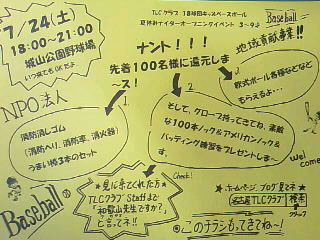 7/24(土)
18:00〜21:00
城山公園野球場
いつ来てもOKだよ
TLCクラブ 18球団キッズベースボール
夏休みナイターオープニングイベント 3〜9才
Baseball
地域貢献事業!!
ナント!!!
先着100名様に還元しま
〜ス!
軟式ボール各種などなど
もらえるよ...
NPO法人
1.
2.
消防消しゴム
(消防ヘリ、消防車、消火器)
うまい棒3本のセット
そして、グローブ持ってきてね、素敵
な100本ノック&アメリカンノック&
バッティング練習をプレゼントしま〜
す
Wel
come
Check!
Baseball
★見に来てくれた方★
TLCクラブStaffまで
「和歌山先生ですか?」
と言ってネ!!
★ホームページ、ブログ見てネ★
名古屋TLCクラブ 検索
クリーック
◎このチラシもってきてね〜!